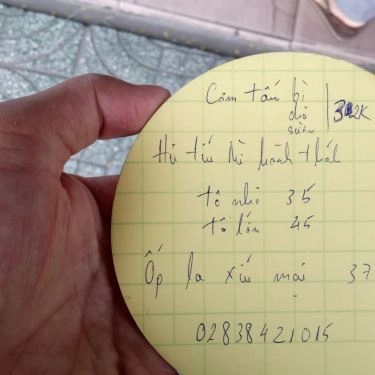 Cơm tấm bì
chả
sườn 32K
Hủ tiếu Mì hoành thánh
tô nhỏ 35
tô lớn 45
Ốp la xíu mại 37
02838421015